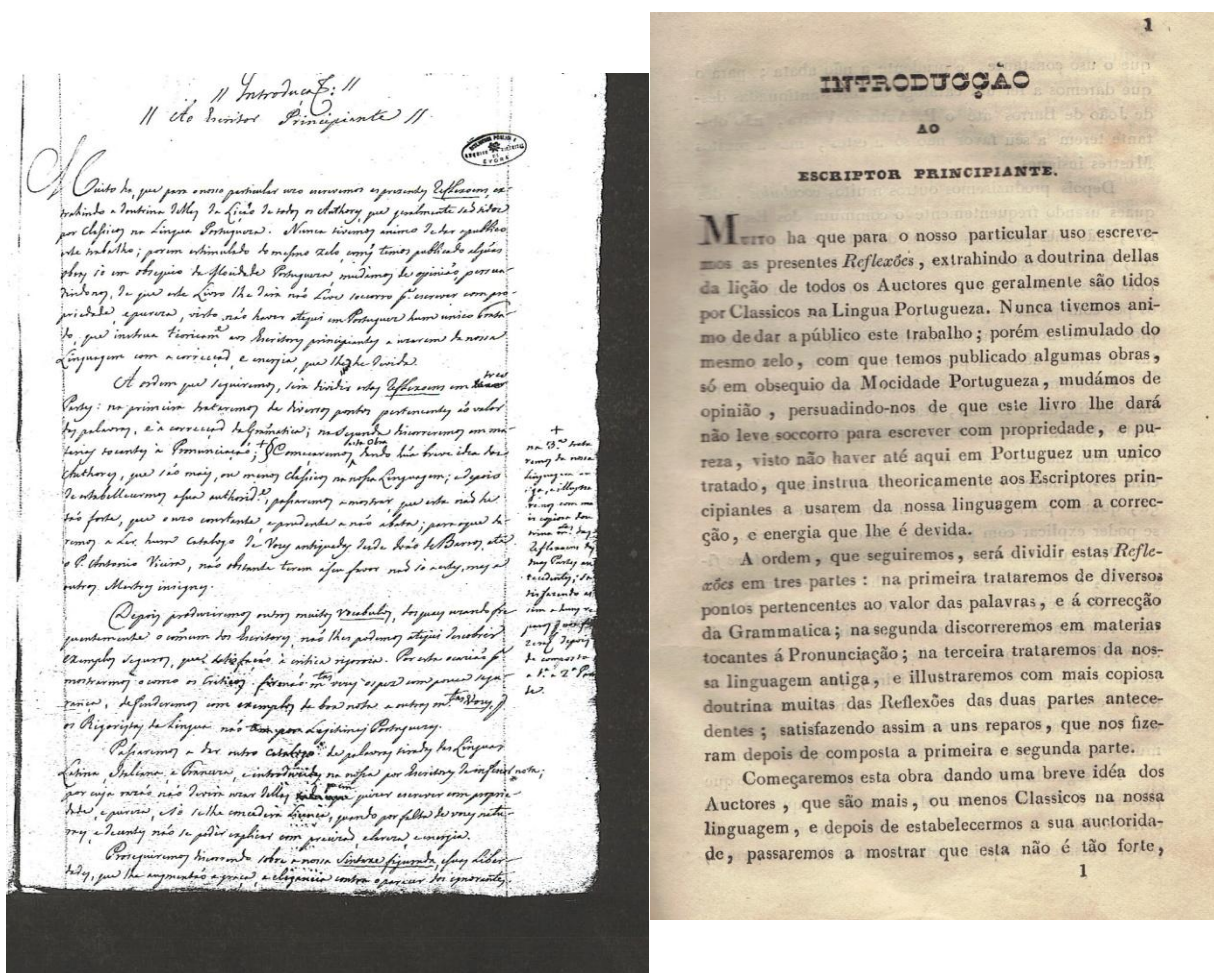 // Introducçaõ //
// Ao Escritor Principiante //
BIBLIOTHECA PUBLICA
EVORA
Muito ha, que para o nosso particular uzo escrevemos as prezentes Reflexoens, ex-
trahindo a doutrina dellas da Liçaõ de todos os Authores, que geralmente saõ tidos
por Classicos na Lingua Portugueza. Nunca tivemos animo de dar a publico
este trabalho; porem estimulado do mesmo zelo com que temos publicado algũas
obras só em obsequio da Mocidade Portugueza mudámos de opiniaõ, persua-
dindonos, de que este Livro lhe dará naõ Leve socorro pª escrever com pro-
priedade, e pureza, visto naõ haver atequi em Portuguez hum unico trata-
do, que instrua teoricamte aos Escritores principiantes a uzarem da nossa
Linguagem com a correcçaõ, e energia, que lhe he devida.
A ordem que seguiremos, será dividir estas Reflexoens em tres
Partes: na primeira trataremos de diversos pontos pertencentes ao valor
das palavras, e á correcçaõ da Grãmatica; na Segunda discorreremos em ma-
terias tocantes á Pronunciaçaõ; + Comecaremos esta Obra dando hũa breve idea dos
Authores, que saõ mais, ou menos Classicos na nossa Linguagem; e depois
de estabellecermos a sua authoride, passaremos a mostrar, que esta naõ he
taõ forte, que o uzo constante, e prudente a naõ abata; para o que da-
remos a Ler hum Catalogo de Vozes antiquadas desde Joaõ de Barros, até
o P. Antonio Vieira, naõ obstante terem a seu favor naõ só a estes, mas a
outros Mestres insignes.
Depois produziremos outros muitos vocabulos, dos quaes uzando fre-
quentemente o cõmum dos Escritores, naõ lhes podemos atequi descubrir
exemplos seguros, que satisfaçaõ a critica rigoroza. Por esta occaziaõ
mostraremos como os Criticos vozes com pouca segu-
rança, defenderemos com exemplos de boa nota a outras
os Rigoristas da Lingua naõ Legitimas Portuguezas.
Passaremos a dar outro Catalogo de palavras tiradas das Linguas
Latina, Italiana, e Franceza, e introduzidas na nossa por Escritores de inferior nota;
por cuja razaõ naõ devem uzar dellas quizer escrever com proprie-
dade, e pureza, e só se lhe concederá Licença, quando por falta de vozes natu-
raes, e decentes naõ se poder explicar com precizaõ, clareza, e energia.
Proseguiremos discorrendo sobre a nossa Sintaxe figurada, e suas Liber-
dades, que lhe augmentaõ a graça, e elegancia contra o parecer dos ignorantes
+
na 3.ª trata-
remos da nossa
linguagem an-
tiga, e illustra-
remos com ma-
is copiosa dou-
trina mtas das
Reflexoens das
duas Partes an-
tecedentes; sa-
tisfazendo as-
sim a huns re-
paros q nos fi-
zeraõ depois
de composta
a 1ª e 2ª Par-
te.
1
INTRODUCÇÃO
AO
ESCRIPTOR PRINCIPIANTE.
Muito ha que para o nosso particular uso escreve-
mos as presentes Reflexões, extrahindo a doutrina dellas
da lição de todos os Auctores que geralmente são tidos
por Classicos na Lingua Portugueza. Nunca tivemos ani-
mo de dar a público este trabalho; porém estimulado do
mesmo zelo, com que temos publicado algumas obras,
só em obsequio da Mocidade Portugueza, mudámos de
opinião, persuadindo-nos de que este livro lhe dará
não leve soccorro para escrever com propriedade, e pu-
reza, visto não haver até aqui em Portuguez um unico
tratado, que instrua theoricamente aos Escriptores prin-
cipiantes a usarem da nossa linguagem com a correc-
ção, e energia que lhe é devida.
A ordem, que seguiremos, será dividir estas Refle-
xões em tres partes: na primeira trataremos de diversos
pontos pertencentes ao valor das palavras, e á correcção
da Grammatica; na segunda discorreremos em materias
tocantes á Pronunciação; na terceira trataremos da nos-
sa linguagem antiga, e illustraremos com mais copiosa
doutrina muitas das Reflexões das duas partes antece-
dentes; satisfazendo assim a uns reparos, que nos fize-
ram depois de composta a primeira e segunda parte.
Começaremos esta obra dando uma breve idéa dos
Auctores, que são mais, ou menos Classicos na nossa
linguagem, e depois de estabelecermos a sua auctorida-
de, passaremos a mostrar que esta não é tão forte,
1